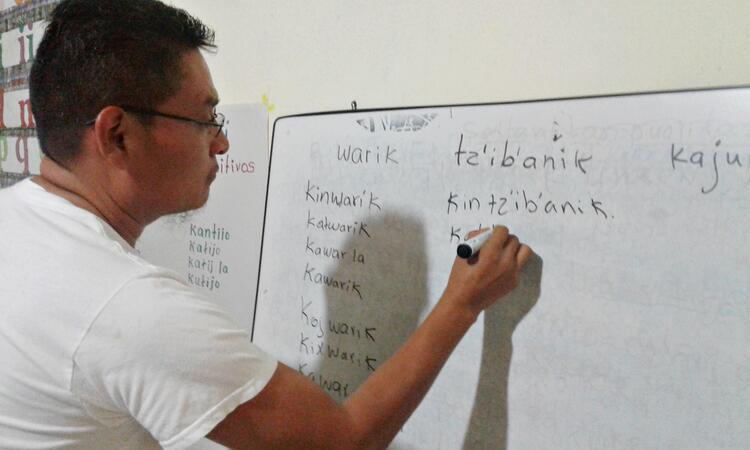 itivos
kantijo
katijo
katij la
kutijo
warik
kinwarik
katwarik
kawar la
kawarik
kojwarik
kixwarik
kawar
tz'ib'anik
kin tz'ib'anik.
kaju